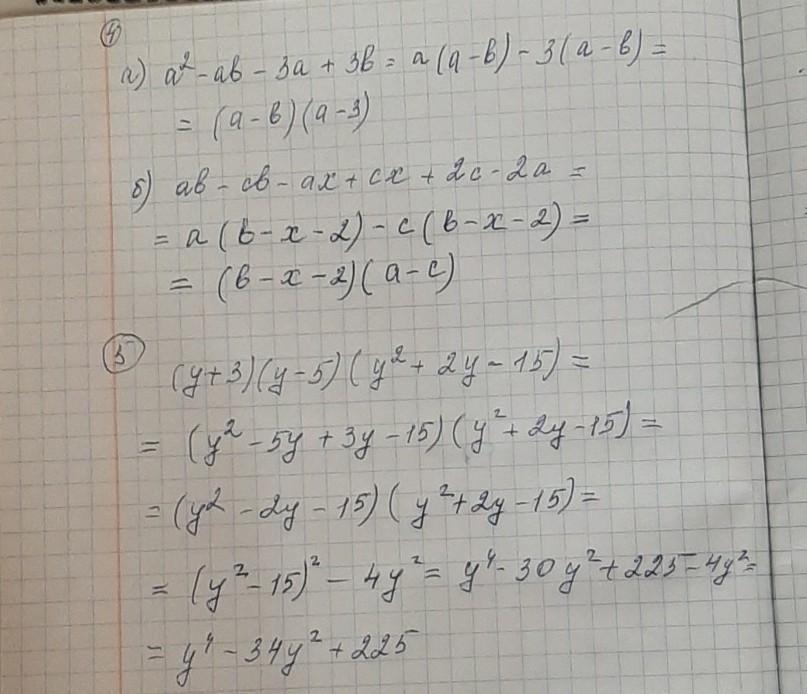 4
а) a² - ab - 3a + 3b = a(a-b) - 3(a-b) =
= (a-b)(a-3)
б) ab - cb - ax + cx + 2c - 2a =
= a(b-x-2) - c(b-x-2) =
= (b-x-2)(a-c)
5
(y+3)(y-5)(y² + 2y - 15) =
= (y² - 5y + 3y - 15)(y² + 2y - 15) =
= (y² - 2y - 15)(y² + 2y - 15) =
= (y² - 15)² - 4y² = y⁴ - 30y² + 225 - 4y² =
= y⁴ - 34y² + 225